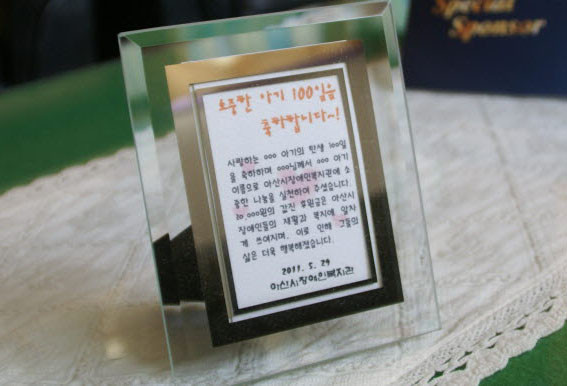 Special
Sponsor
소중한 아기 100일을
축하합니다~!
사랑하는 ooo 아기의 탄생 100일
을 축하하며 ooo님께서 ooo 아기
이름으로 아산시장애인복지관에 소
중한 나눔을 실천하여 주셨습니다.
30,000원의 값진 후원금은 아산시
장애인들의 재활과 복지에 알차
게 쓰여지며, 이로 인해 그들의
삶은 더욱 행복해졌습니다.
2011. 5. 29
아산시장애인복지관